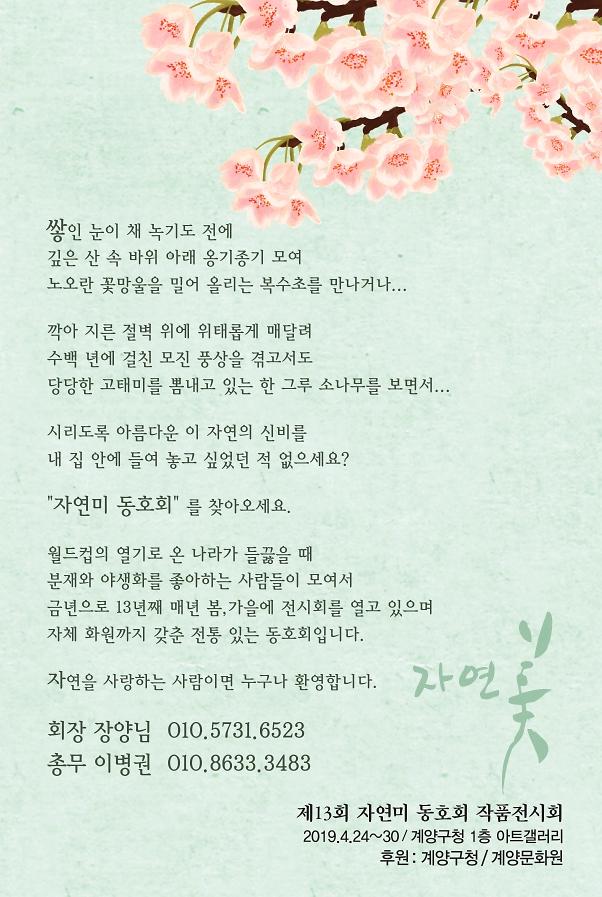 쌓인 눈이 채 녹기도 전에
깊은 산 속 바위 아래 옹기종기 모여
노오란 꽃망울을 밀어 올리는 복수초를 만나거나...
깎아 지른 절벽 위에 위태롭게 매달려
수백 년에 걸친 모진 풍상을 겪고서도
당당한 고태미를 뽐내고 있는 한 그루 소나무를 보면서...
시리도록 아름다운 이 자연의 신비를
내 집 안에 들여 놓고 싶었던 적 없으세요?
"자연미 동호회" 를 찾아오세요.
월드컵의 열기로 온 나라가 들끓을 때
분재와 야생화를 좋아하는 사람들이 모여서
금년으로 13년째 매년 봄,가을에 전시회를 열고 있으며
자체 화원까지 갖춘 전통 있는 동호회입니다.
자연을 사랑하는 사람이면 누구나 환영합니다.
자연美
회장 장양님 010.5731.6523
총무 이병권 010.8633.3483
제13회 자연미 동호회 작품전시회
2019.4.24~30 / 계양구청 1층 아트갤러리
후원 : 계양구청 / 계양문화원